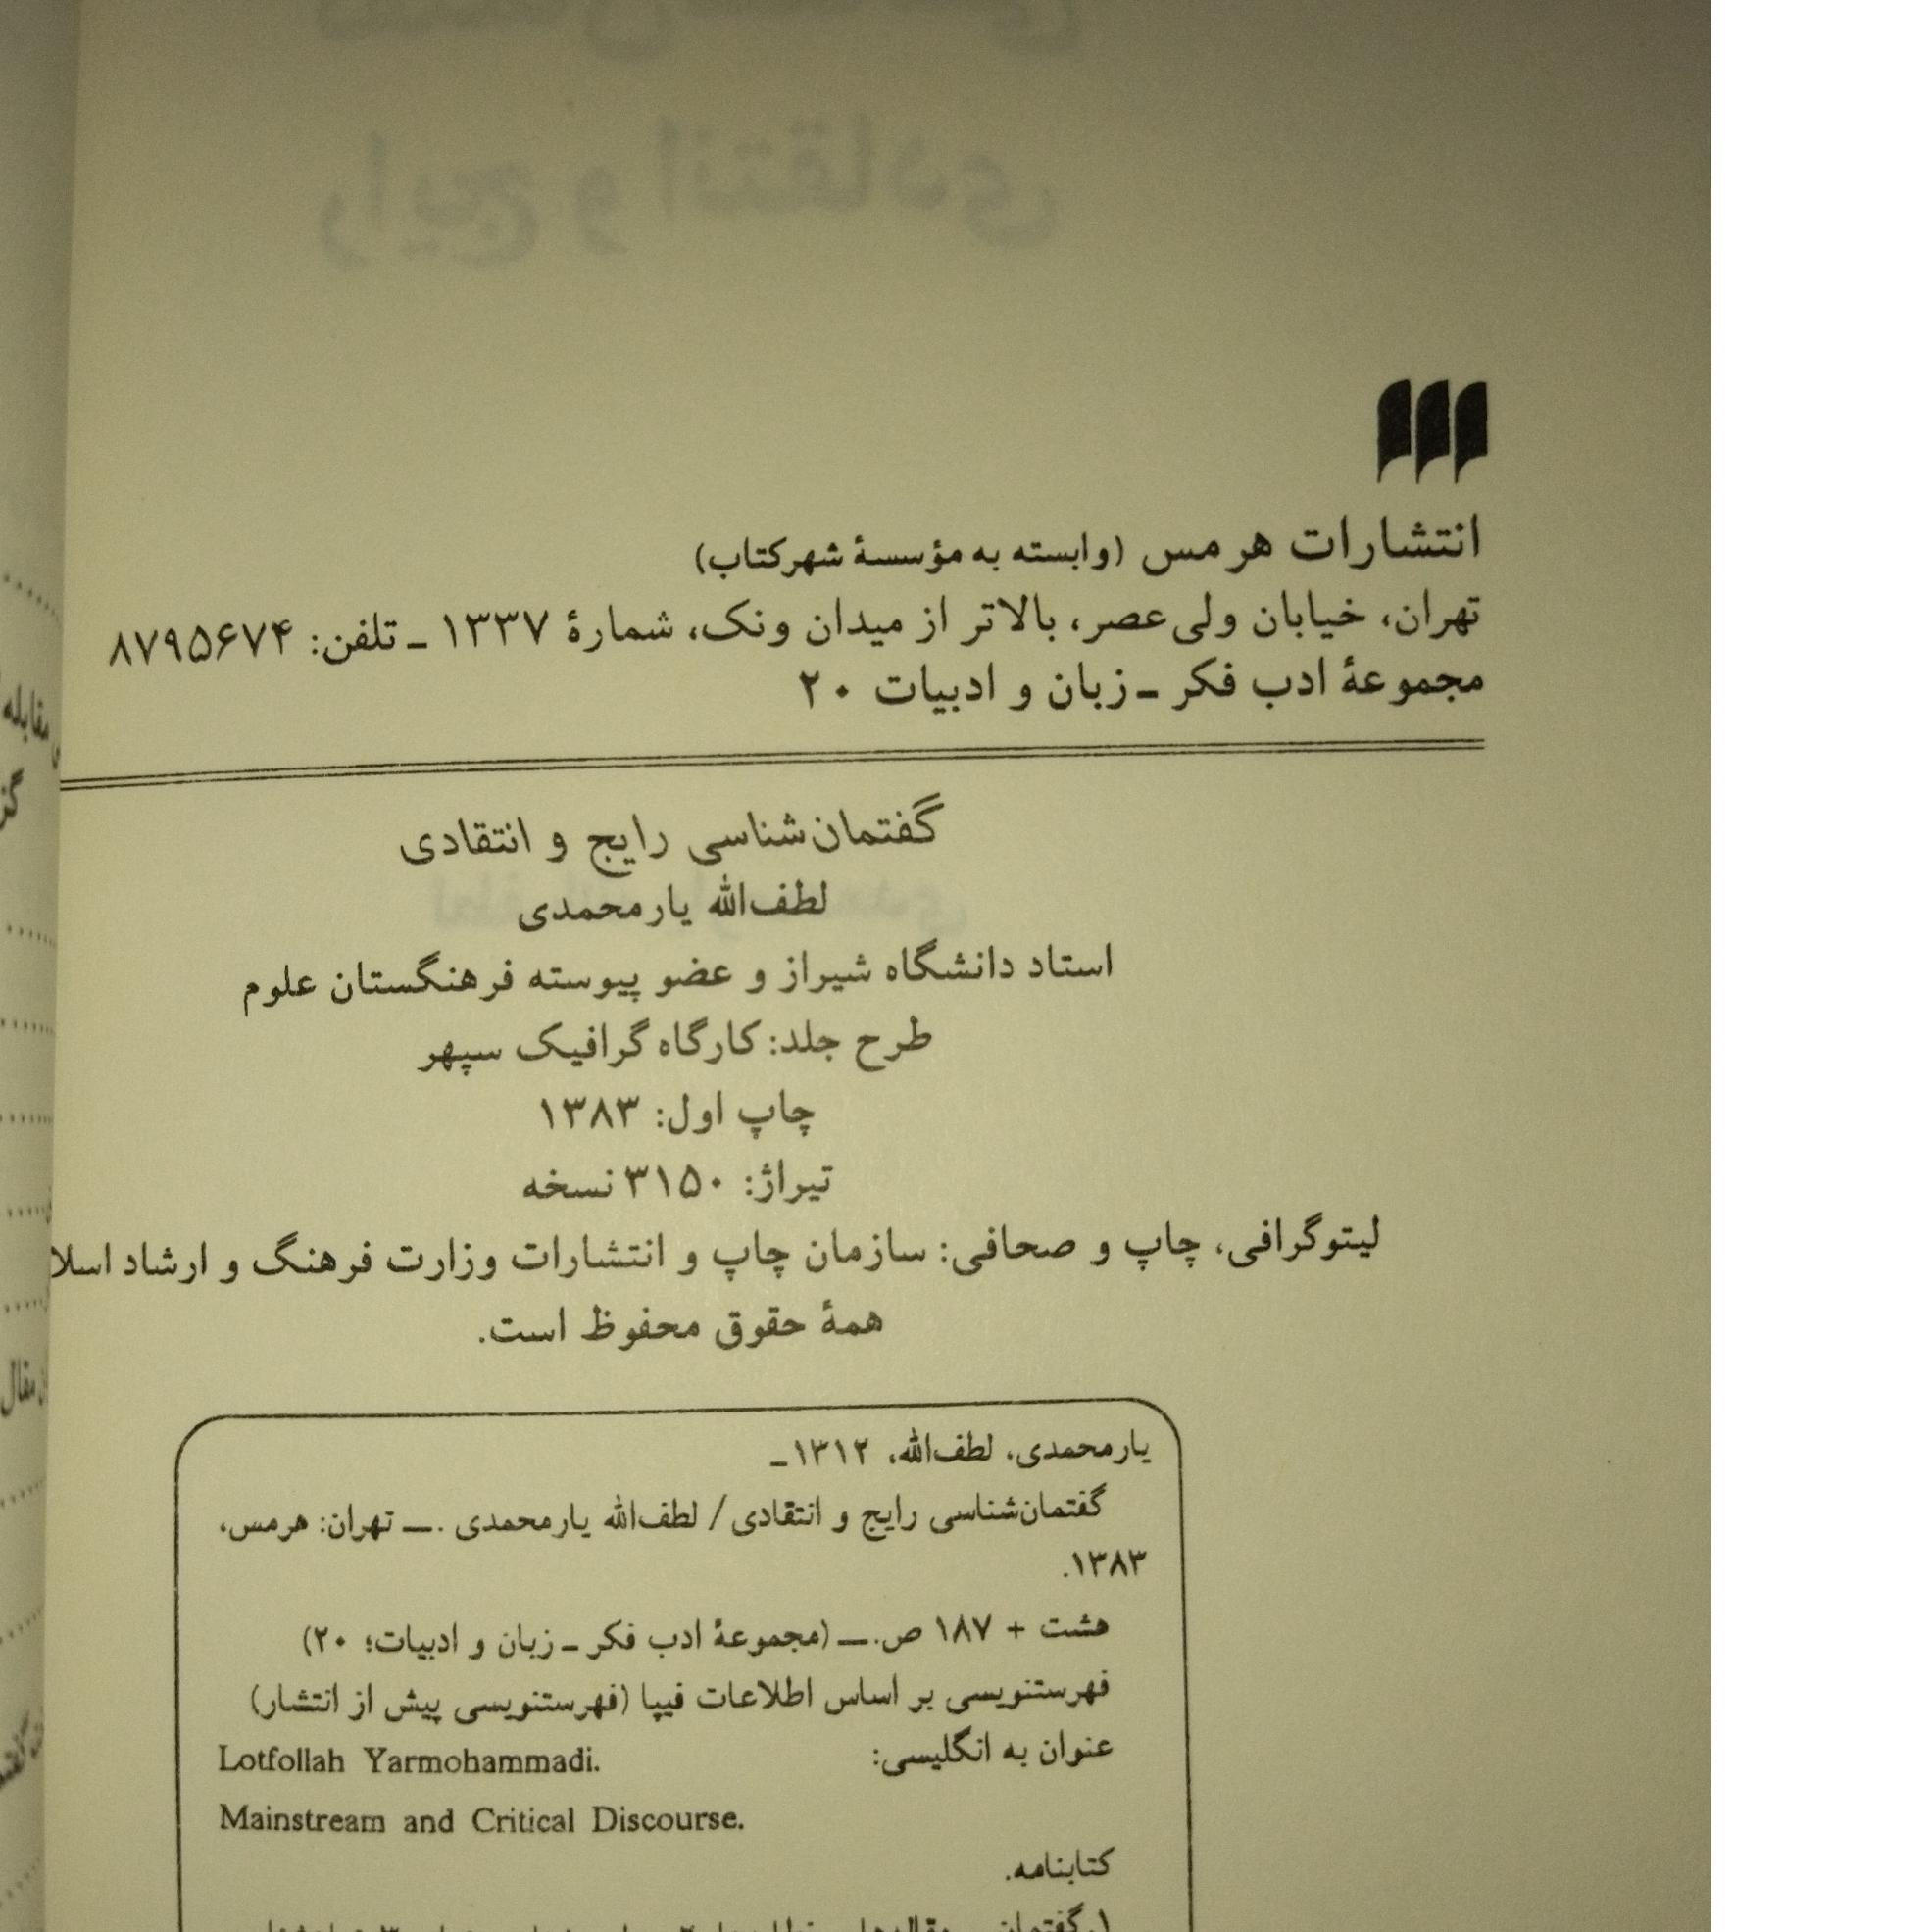 انتشارات هرمس (وابسته به مؤسسهٔ شهرکتاب)
تهران، خیابان ولی‌عصر، بالاتر از میدان ونک، شمارهٔ ۱۳۳۷ ـ تلفن: ۸۷۹۵۶۷۴
مجموعهٔ ادب فکر ـ زبان و ادبیات ۲۰
گفتمان‌شناسی رایج و انتقادی
لطف‌الله یارمحمدی
استاد دانشگاه شیراز و عضو پیوسته فرهنگستان علوم
طرح جلد: کارگاه گرافیک سپهر
چاپ اول: ۱۳۸۳
تیراژ: ۳۱۵۰ نسخه
لیتوگرافی، چاپ و صحافی: سازمان چاپ و انتشارات وزارت فرهنگ و ارشاد اسلا
همهٔ حقوق محفوظ است.
یارمحمدی، لطف‌الله، ۱۳۱۲ـ
گفتمان‌شناسی رایج و انتقادی / لطف‌الله یارمحمدی .ـــ تهران: هرمس،
۱۳۸۳.
هشت + ۱۸۷ ص.ـــ (مجموعهٔ ادب فکر ـ زبان و ادبیات؛ ۲۰)
فهرستنویسی بر اساس اطلاعات فیپا (فهرستنویسی پیش از انتشار)
عنوان به انگلیسی: Lotfollah Yarmohammadi.
Mainstream and Critical Discourse.
کتابنامه.